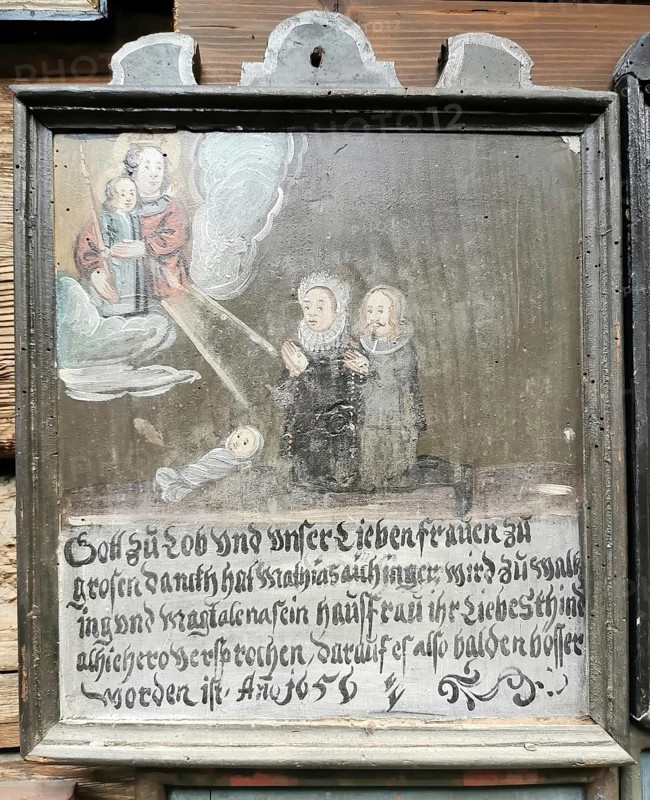 Gott zu Lob vnd vnser Lieben frauen zu
grosen danckh hat Mathias aichinger, wird zu Walk
ing vnd Magtalena sein hausfrau ihr Liebes khind
alhiehero versprochen, darauf es also balden bösser
worden ist. Año 1656